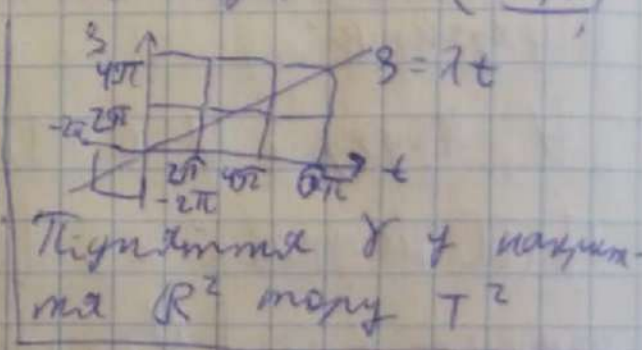 S
4π
S = λt
-2π 2π
2π 4π 6π t
-2π
Підняття γ у накрит-
тя R² тору T²